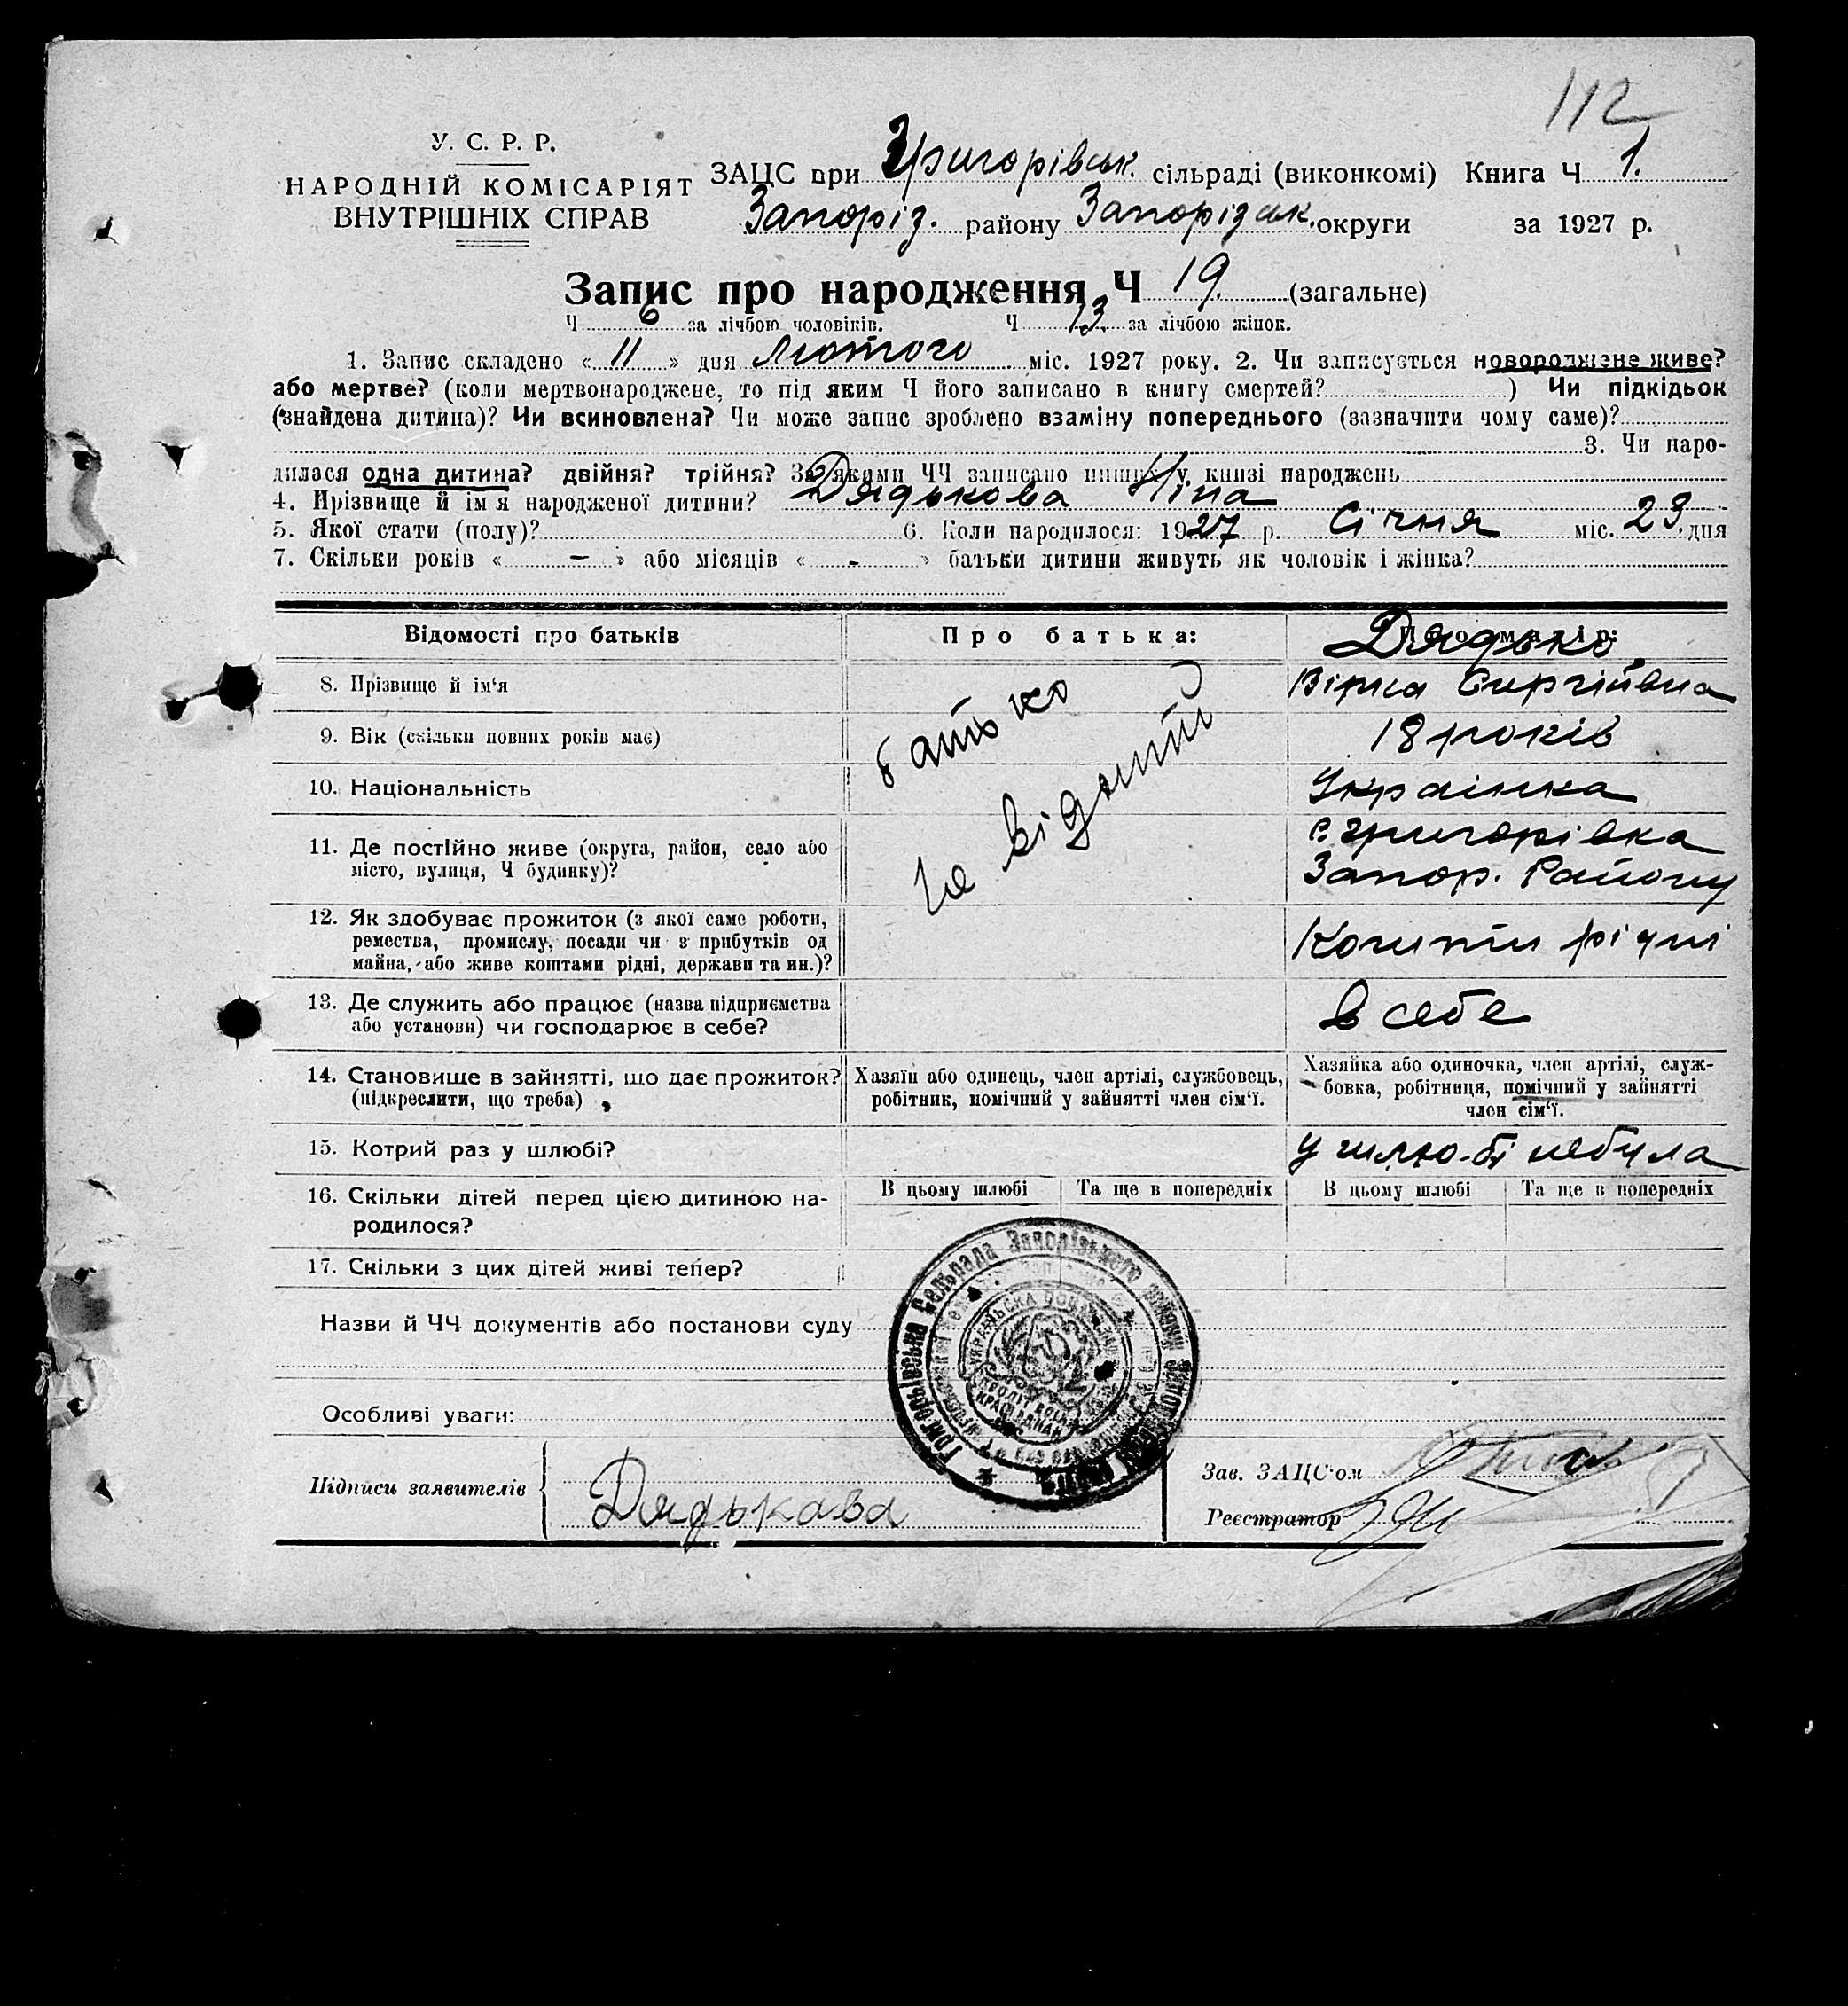 112
У. С. Р. Р.
НАРОДНІЙ КОМІСАРІЯТ
ВНУТРІШНІХ СПРАВ
ЗАЦС при Григорівськ. сільраді (виконкомі) Книга Ч 1.
Запоріз. району Запорізськ. округи за 1927 р.
Запис про народження Ч 19. (загальне)
Ч 6 за лічбою чоловіків. Ч 13. за лічбою жінок.
1. Запис складено « 11 » дня Лютого міс. 1927 року. 2. Чи записується новороджене живе?
або мертве? (коли мертвонароджене, то під яким Ч його записано в книгу смертей? ) Чи підкідьок
(знайдена дитина)? Чи всиновлена? Чи може запис зроблено взаміну попереднього (зазначити чому саме)?
3. Чи наро-
дилася одна дитина? двійня? трійня? За якими ЧЧ записано инших у книзі народжень
4. Прізвище й ім'я народженої дитини? Дядькова Ніна
5. Якої стати (полу)? 6. Коли народилося: 1927 р. Січня міс. 23. дня
7. Скільки років « — » або місяців « - » батьки дитини живуть як чоловік і жінка?
Відомості про батьків Про батька: Про матір:
Дядько
8. Прізвище й ім'я Вірка Сиргіївна
9. Вік (скільки повних років має) 18 років
батько
не відомий
10. Національність Українка
11. Де постійно живе (округа, район, село або с. Григорівка
місто, вулиця, Ч будинку)? Запор. Району
12. Як здобуває прожиток (з якої саме роботи,
ремества, промислу, посади чи з прибутків од Кошти рідні
майна, або живе коштами рідні, держави та ин.)?
13. Де служить або працює (назва підприємства в себе
або установи) чи господарює в себе?
14. Становище в зайнятті, що дає прожиток?
(підкреслити, що треба)
Хазяїн або одинець, член артілі, службовець,
робітник, помічний у зайнятті член сім'ї.
Хазяйка або одиночка, член артілі, служ-
бовка, робітниця, помічний у зайнятті
член сім'ї.
15. Котрий раз у шлюбі? у шлюбі небула
16. Скільки дітей перед цією дитиною на-
родилося?
В цьому шлюбі Та ще в попередніх В цьому шлюбі Та ще в попередніх
17. Скільки з цих дітей живі тепер?
Назви й ЧЧ документів або постанови суду
Григорьівська Сельрада Запорізького
Особливі уваги:
Підписи заявителів Дядькава
Зав. ЗАЦС'ом
Реєстратор